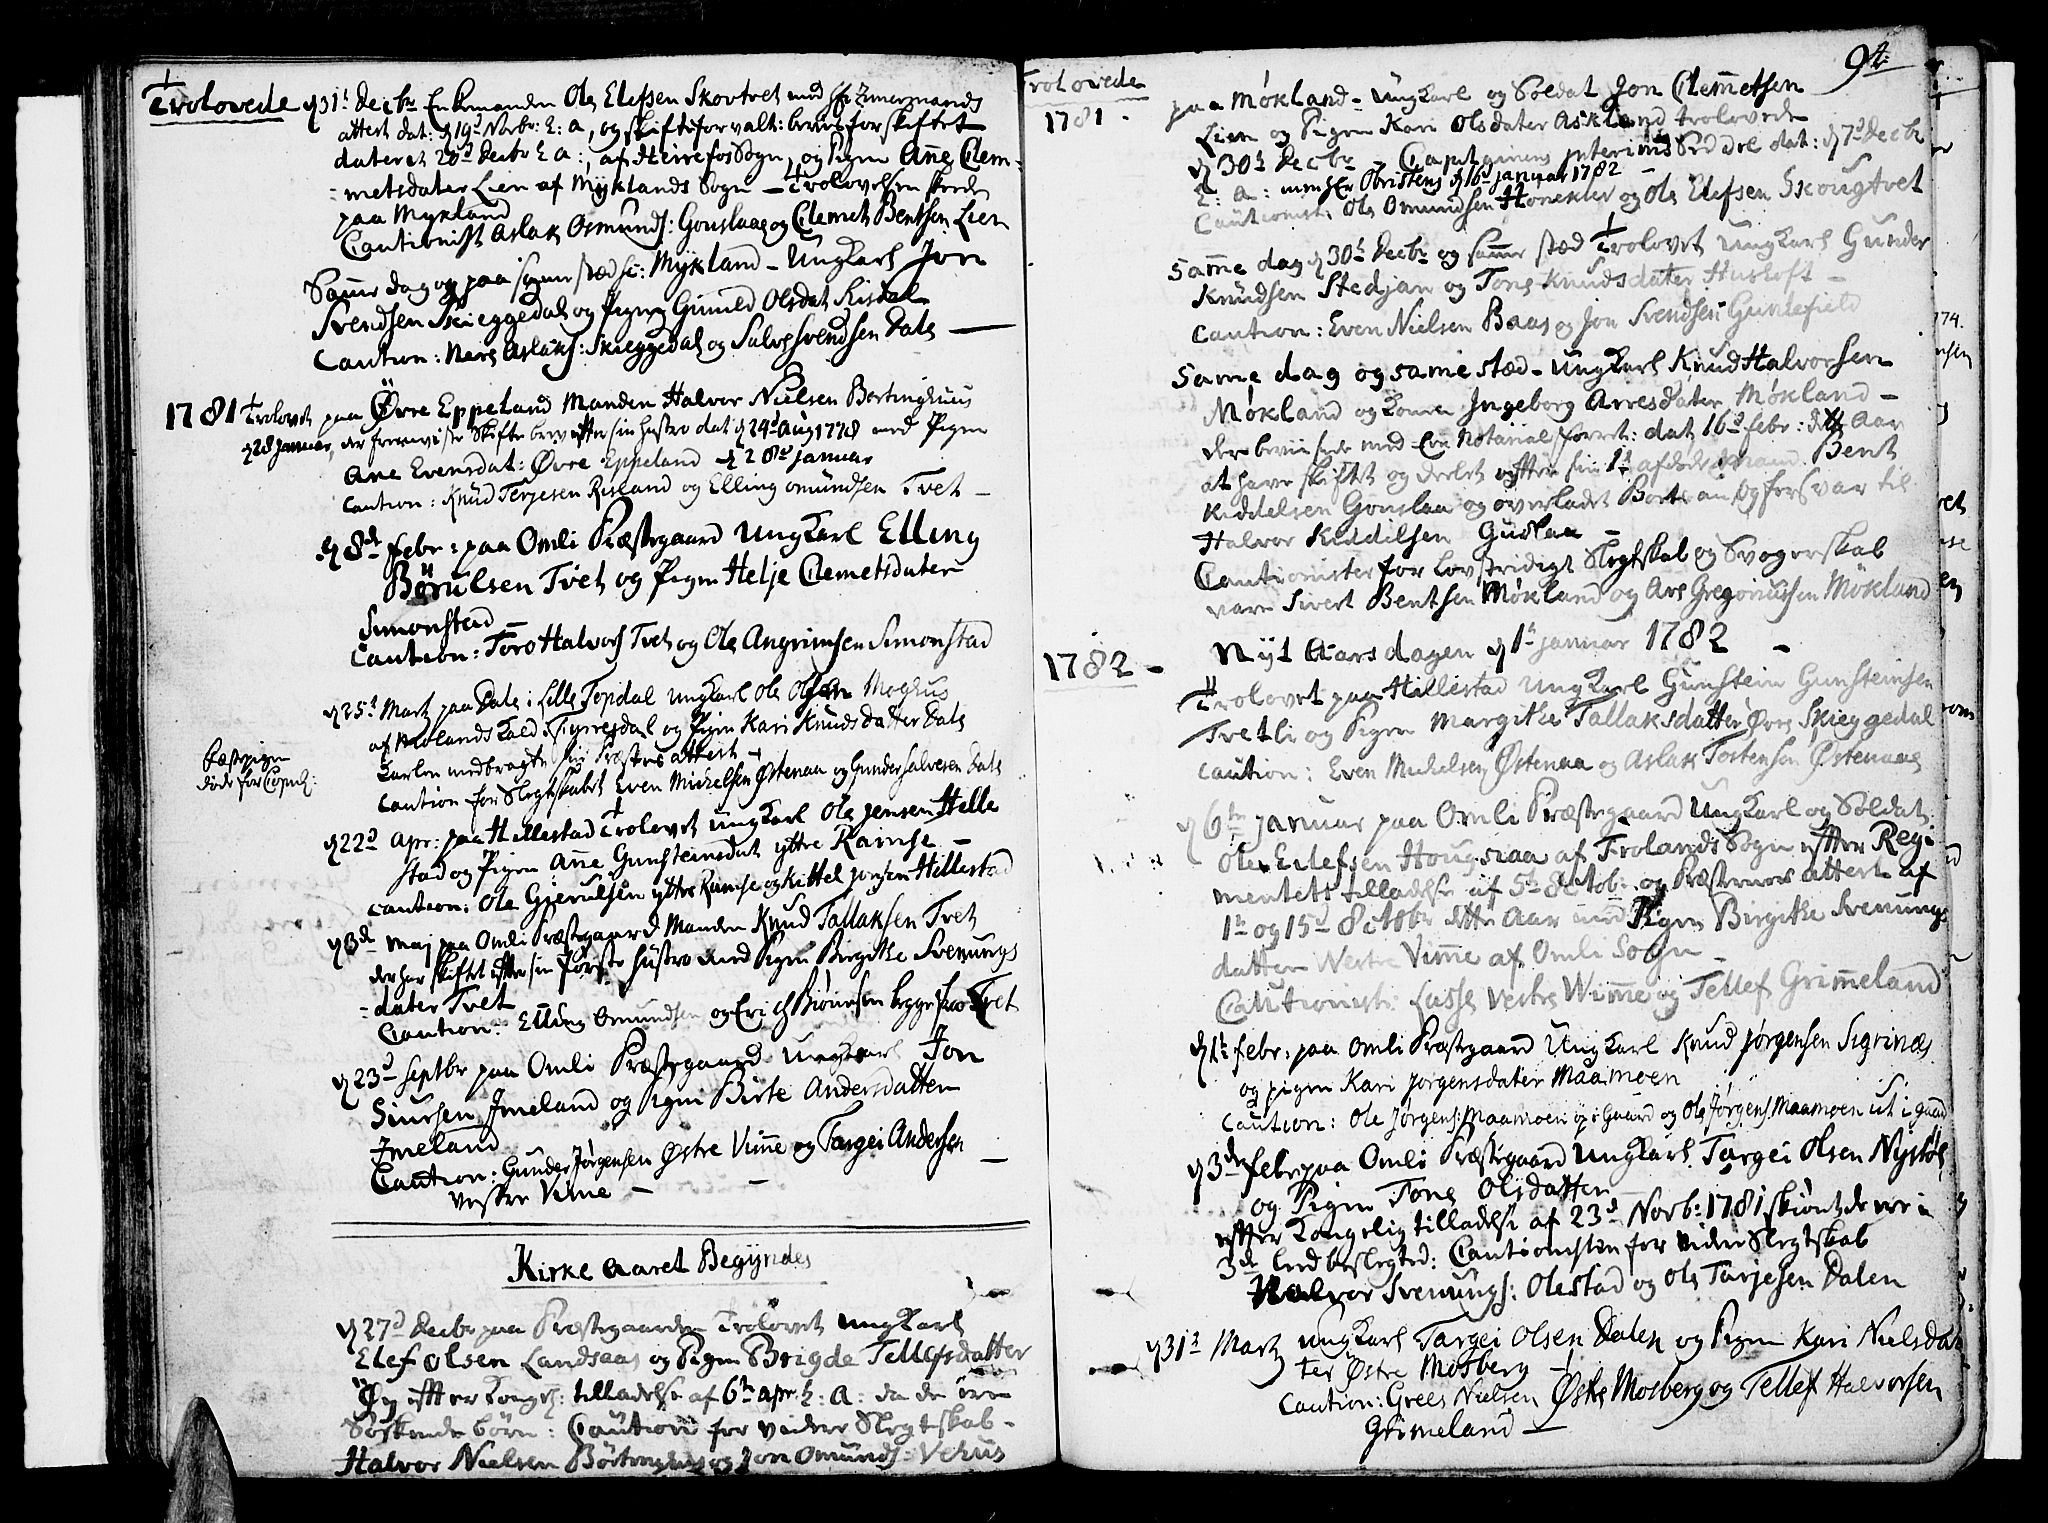 Trolovede
d 31t Decbr Enkemanden Ole Elefsen Skovtvet med Hr Zimermands
attest dat: d 19d Novbr: h: a, og skifteforvalt: beviis for skiftet
dateret 20d Decbr h: a:, af Heirefos Sogn, og Pigen Añe Clem=
=metsdater Lien af Myklands Sogn – Trolovelsen skede
paa Mykland
Cautionist Aslak Osmunds: Gouslaae og Clemet Bentsen Lien
Sam̃e dag og paa sam̃e stæd Mykland – Ungkarl Jon
Svendsen Skieggedal og Pigen Gunild Olsdat Risdal
Caution: Aslaks: Skieggedal og Salve Svendsen Dale —
1781 Trolovet paa Øvre Eppeland Manden Halvor Nielsen Børtinghuus
d 28 Januar, der foreviste Skifte brev efter sin hustro dat d 24d Aug 1778 med Pigen
Ane Evensdat: Øvre Eppeland d 28d Januar
Caution: Knud Terjesen Risland og Elling Omundsen Tvet –
d 8de febr: paa Omli Præstegaard Ungkarl Elling
Børulsen Tvet og Pigen Helje Clemetsdater
Simonstad –
Caution: Toro Halvors Tvet og Ole Angrimsen Simonstad
d 25d Martz paa Dale i Lille Topdal Ungkarl Ole Olsen Moghus
af Molands Kald i Tyrresdal og Pigen Kari Knudsdatter Dale
Karlen medbragte sin Præstes attest –
Caution for Slegtskabet Even Mickelsen Østenaa og Gunder Salvesen Dale
Fæstepigen
døde for Copul:
d 22d Apr: paa Hillestad Trolovet Ungkarl Ole Jensen Helle
stad og Pigen Añe Gunsteinsdat yttre Ramse –
Caution: Ole Gierulsen yttre Ramse og Kittel Jensen Hillestad
d 3de Maj paa Omli Præstegaard Manden Knud Tallaksen Tvet
der har skiftet efter sin første hustro med Pigen Birgithe Svenungs
=dater Tvet
Caution: Elling Omundsen og Erich Biørnsen begge fra Tvet
d 23d Septbr paa Omli Præstegaard Ungkarl Jon
Siursen Jmeland og Pigen Birte Andersdatter
Jmeland
Caution: Gunder Jørgensen Østre Vim̃e og Targei Andersen
vestre Vime –
Kirke Aaret Begyndes
d 27d Decbr paa Præstegaarden Trolovet Ungkarl
Elef Olsen Landsaas og Pigen Brigde Tellefsdatter
Øy efter Kongel: tilladelse af 6te Apr. h: a: da de ere
Søskende børn: Caution for videre Slegtskab –
Halvor Nielsen Børtinghus og Jon Omunds: Vehus
94.
Trolovede
1781.
paa Møkland – Ungkarl og Soldat Jon Clem̃etsen
Lien og Pigen Kari Olsdater Askland trolovede
d 30te Decbr – Capitainens Interims Seddel dat: d 7d Decbr
h: a: men Hr Obristens d 16d Januar 1782 –
Cautionist: Ole Omundsen Honekler og Ole Elefsen Skougtvet
Sam̃e dag d 30te Decbr og sam̃e stæd Trolovet Ungkarl Gunder
Knudsen Stedjan og Tone Knudsdater Husloft –
Caution: Even Nielsen Baas og Jon Svendsen Gunlefield
Same dag og same stæd – Ungkarl Knud Halvorsen
Møkland og Konen Jngeborg Arresdater Møkland –
der beviisede med En Notarial forret: dat 16d febr: dette Aar
at have skiftet og deelet efter sin 1te afdøde Mand Bent
Kiddelsen Gouslaa og overladet Børt an og forsvar til
Halvor Kiddilsen Gudslaa –
Cautionister for Lovstridigt Slegtskab og Svogerskab
vare Sivert Bentsen Møkland og Are Gregoriussen Møkland
1782 –
Nyt Aarsdagen d 1te Januar 1782 –
Trolovet paa Hillestad Ungkarl Gunstein Gunsteinsen
Tvetli og Pigen Margithe Tallaksdatter Øvre Skieggedal
Caution: Even Mickelsen Østenaa og Aslak Tostensen Østenaae
d 6te Januar paa Omli Præstegaard Ungkarl og Soldat
Ole Eilefsen Hougsiaa af Frolands Sogn efter Regi
mentets tilladelse af 5te Octob: og Præsternes attest af
1te og 15d Octobr dette Aar med Pigen Birgithe Svenungs
datter Vestre Vim̃e af Omli Sogn –
Cautionist: Lasse Vestre Wim̃e og Tellef Grim̃eland
d 1te febr: paa Omli Præstegaard Ungkarl Knud Jørgensen Sigrinæs
og pigen Kari Jørgensdater Maamoen
Caution: Ole Jørgens: Maamoen op i Gaard og Ole Jørgens Maamoen ut i gaard
d 3de febr paa Omli Præstegaard Ungkarl Targei Olsen Nystøl
og Pigen Tone Olsdatter
efter Kongelig tilladelse af 23d Novb: 1781 skiønt de ere i
3de Led beslegted: Cautionisten for vider Slegtskab
Halvor Svenungs: Olestad og Ole Tarjesen Dalen
d 31t Martz Ungkarl Targei Olsen Dalen og Pigen Kari Nielsdat
ter Østre Mosberg –
Caution: Grees Nielsen Østre Mosberg og Tellef Halvorsen
Grimeland –